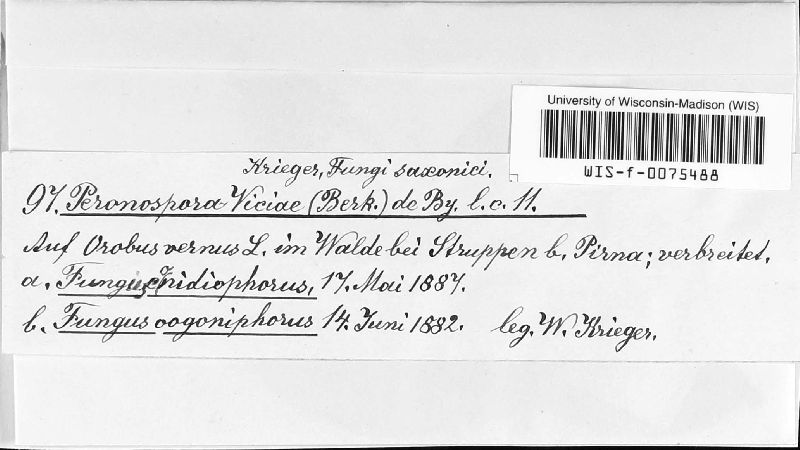 University of Wisconsin-Madison (WIS)
WIS-f-0075488
Krieger, Fungi saxonici.
97. Peronospora Viciae (Berk.) de By. l. c. 11.
Auf Orobus vernus L. im Walde bei Struppen b. Pirna; verbreitet.
a. Fungus conidiophorus, 17. Mai 1887.
b. Fungus oogoniphorus 14. Juni 1882. leg. W. Krieger.